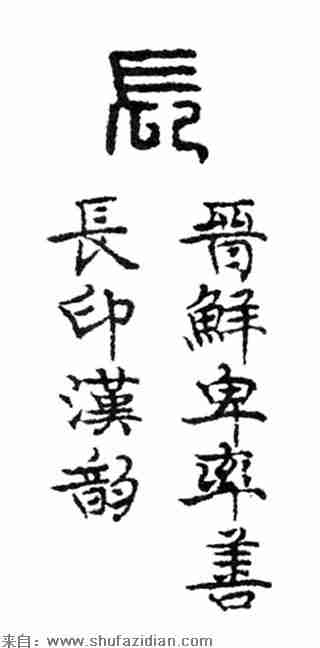 長
晋鮮卑率善
長印漢韵
来自：www.shufazidian.com